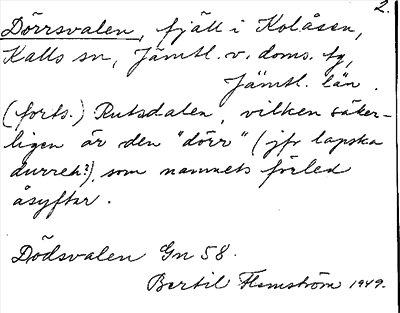 2.
Dörrsvalen, fjäll i Kolåsen,
Kalls sn, Jämtl. v. doms. tg,
Jämtl. län.
(forts.) Rutsdalen, vilken säker-
ligen är den "dörr" (jfr lapska
durreh?), som namnets förled
åsyftar.
Dödsvalen Gn 58.
Bertil Flemström 1949.